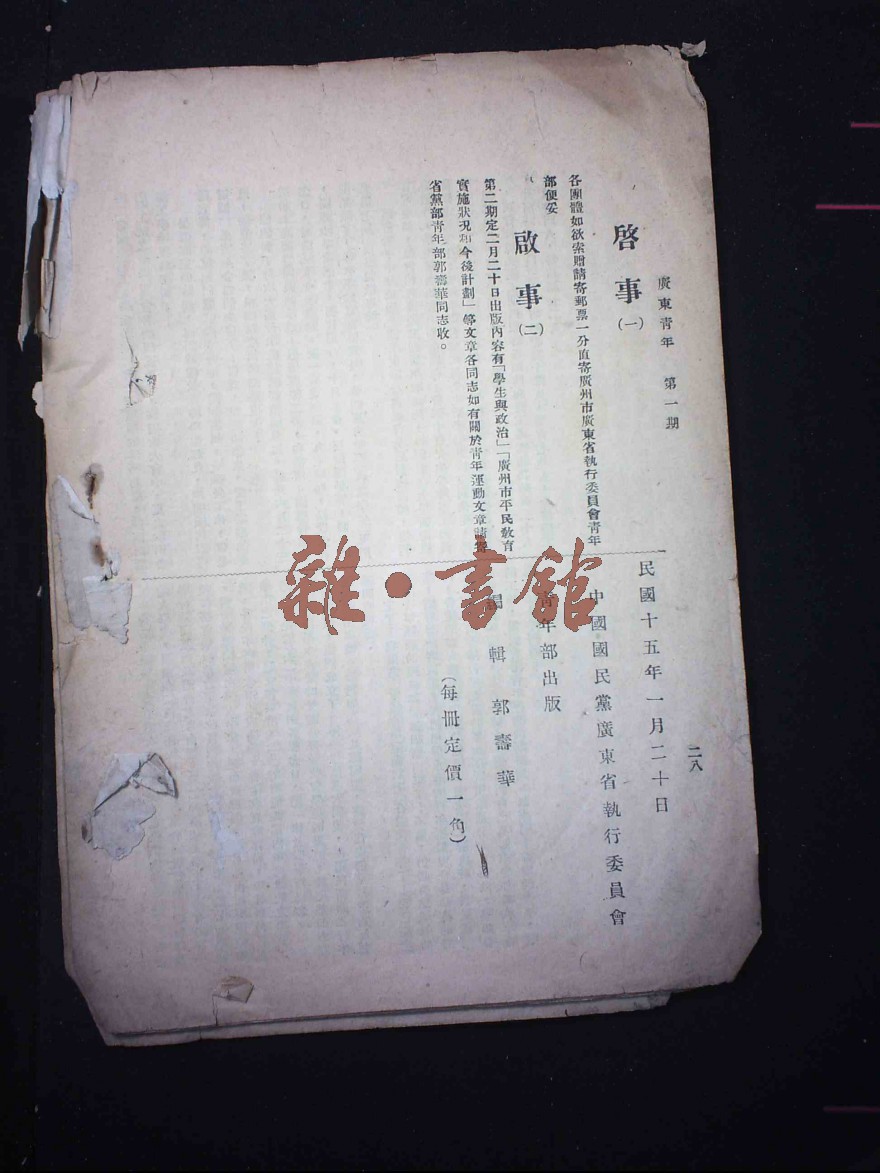 廣東青年　第一期
二八
啓事(一)
各團體如欲索贈請寄郵票一分直寄廣州市廣東省執行委員會青年
部便妥
啟事(二)
第二期定二月二十日出版內容有「學生與政治」「廣州市平民教育
實施狀況和今後計劃」等文章各同志如有關於青年運動文章請寄
省黨部青年部郭壽華同志收。
民國十五年一月二十日
中國國民黨廣東省執行委員會
青年部出版
編輯　郭壽華
(每冊定價一角)
雜·書館